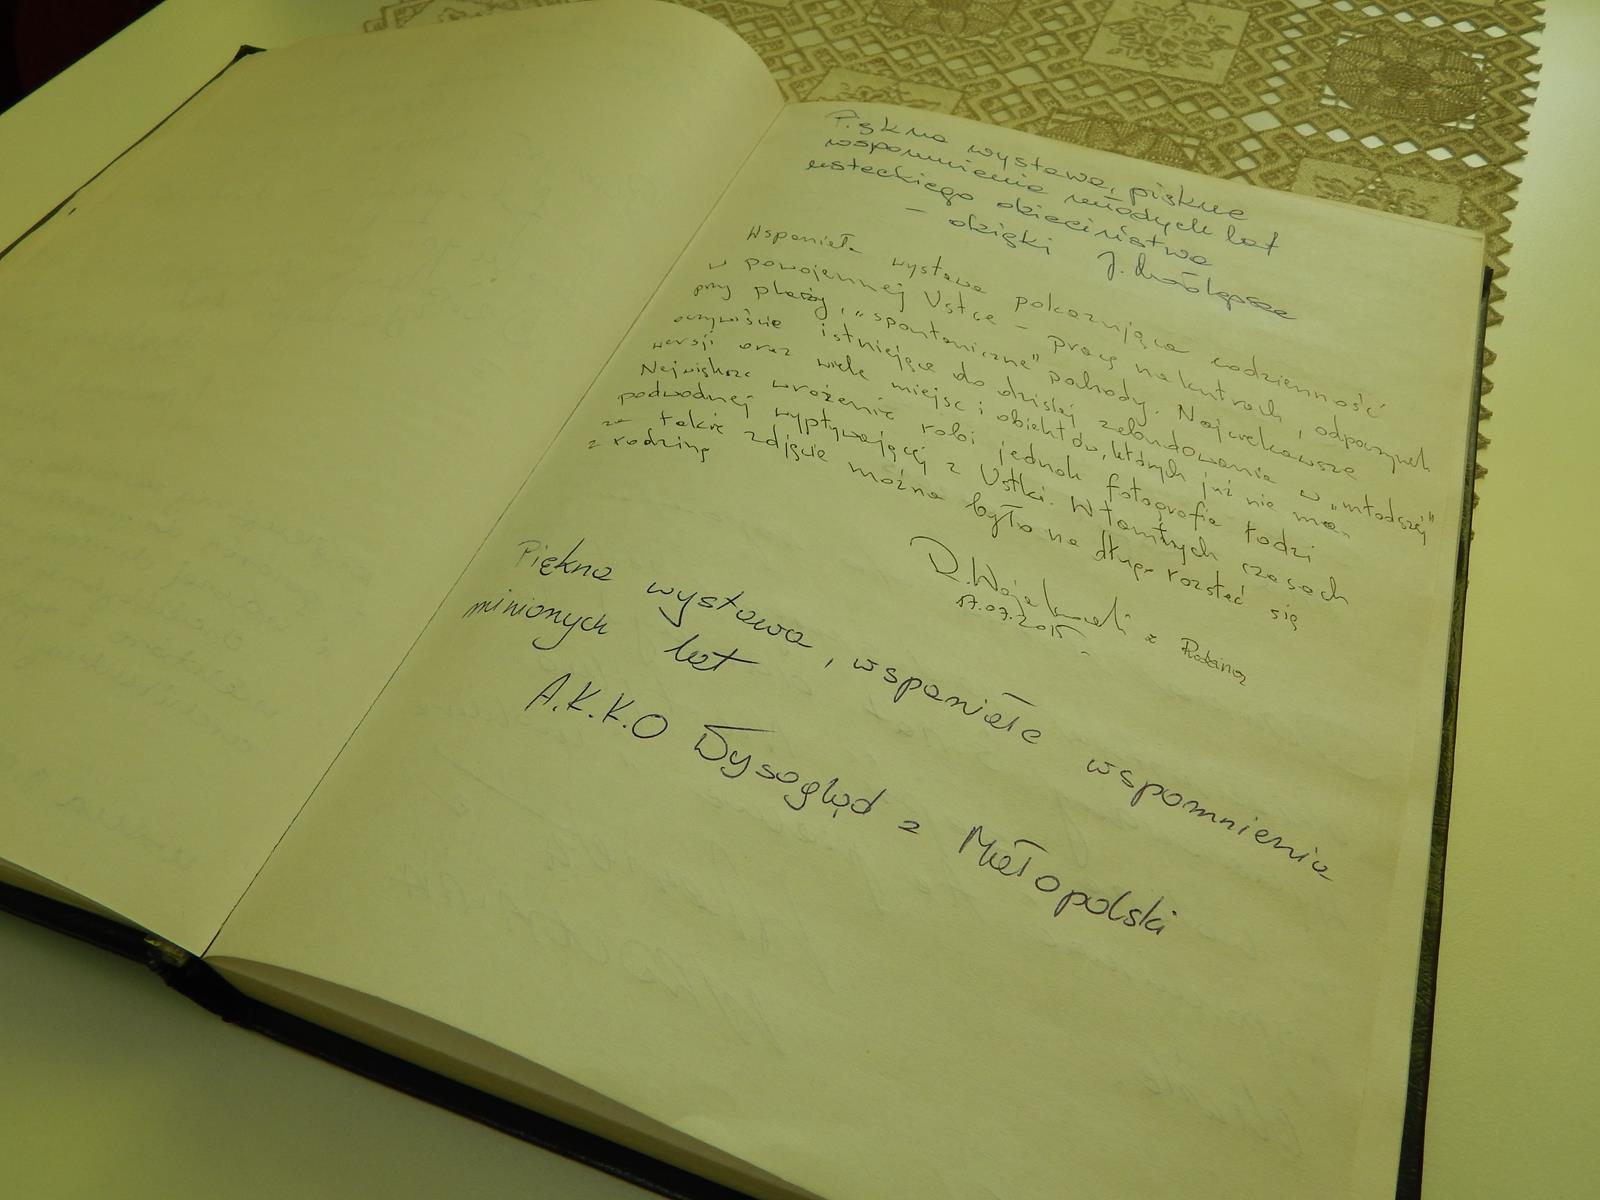 Piękna wystawa, piękne
wspomnienia młodych lat
usteckiego dzieciństwa
– dzięki J.
Wspaniała wystawa pokazująca codzienność
w powojennej Ustce – pracę na kutrach, odpoczynek
przy plaży, "spontaniczne" pochody. Najciekawsze
oczywiście istniejące do dzisiaj zabudowania w „młodszej"
wersji oraz wiele miejsc i obiektów, których już nie ma.
Największe wrażenie robi jednak fotografia łodzi
podwodnej wypływającej z Ustki. W tamtych czasach
za takie zdjęcie można było na długo rozstać się
z rodziną
D. z
17.07.2015
Piękna wystawa, wspaniałe wspomnienia
minionych lat
A.K.K.O Wysogląd z Małopolski